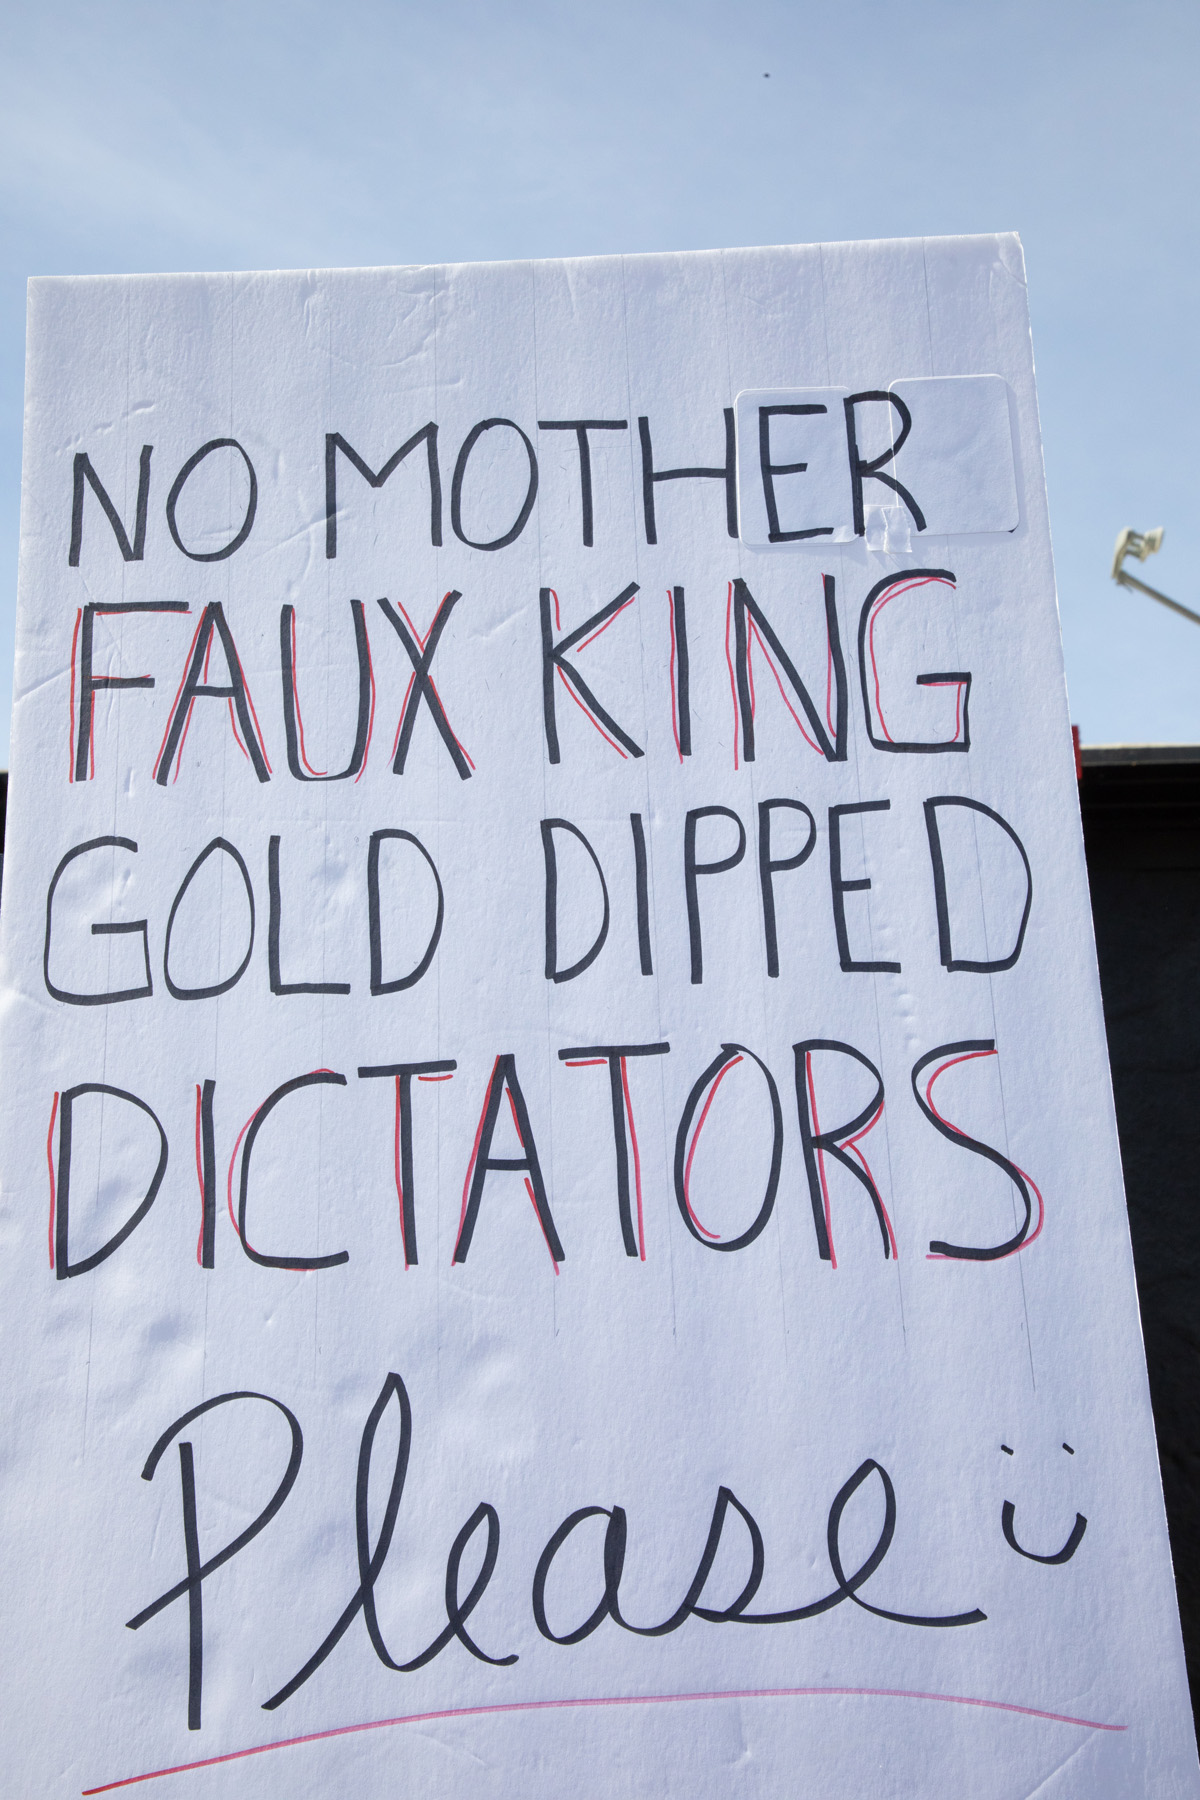 NO MOTHER
FAUX KING
GOLD DIPPED
DICTATORS
Please